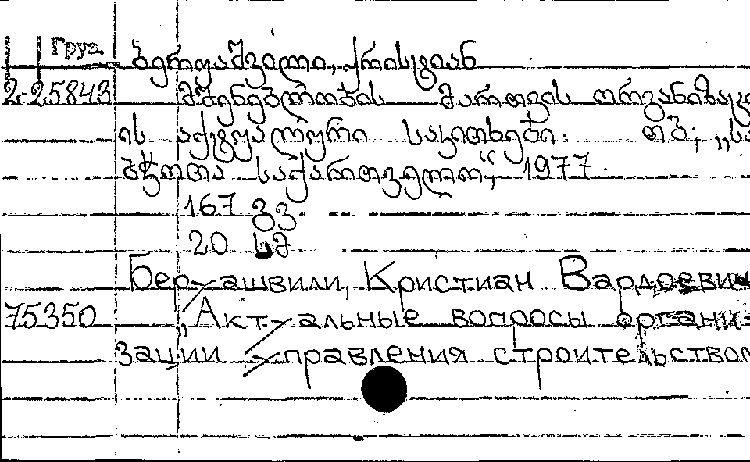 Груз
ბერუაშვილი, ქრისტიან
2-25843 მშენებლობის მართვის ორგანიზაც
ის აქტუალური საკითხები. თბ., „სა
ბჭოთა საქართველო“, 1977
167 გვ
20 სმ
Беруашвили, Кристиан Вардоевич
75350 „Актуальные вопросы органи-
зации управления строительством